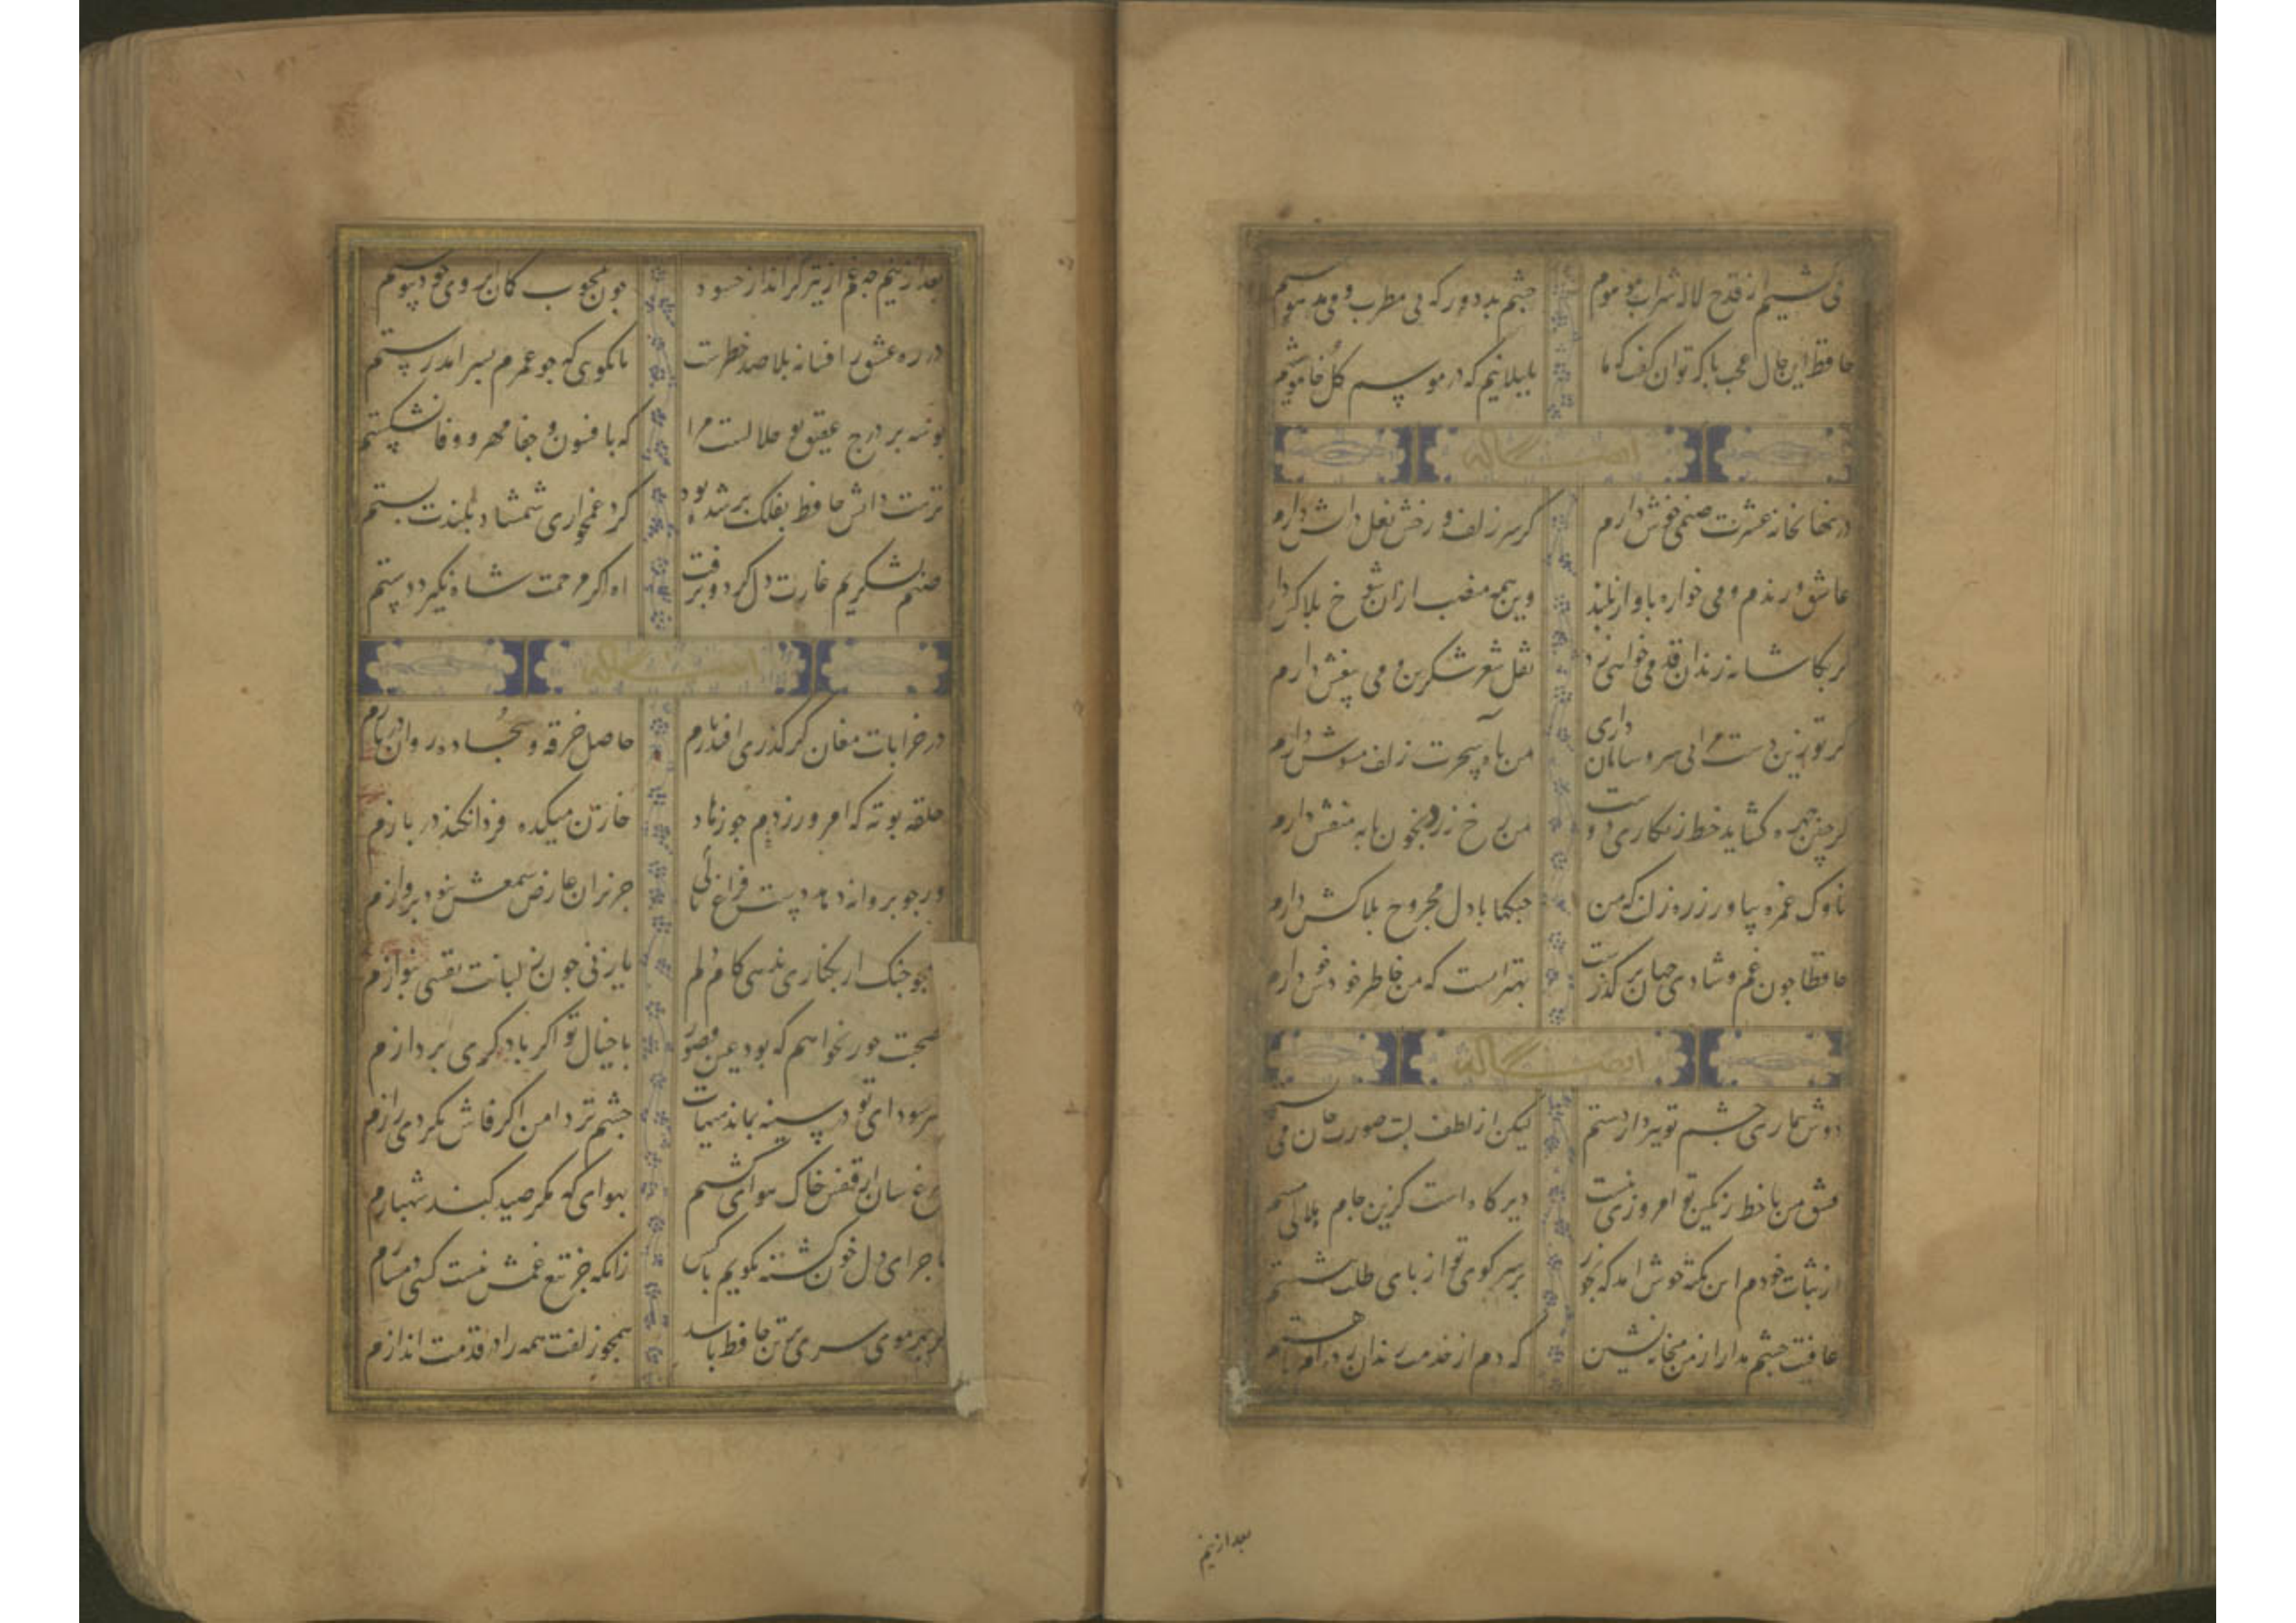 می کشیم از قدح لاله شراب موهوم
چشم بد دور که بی مطرب و می مدهوشیم
حافظ این حال عجب با که توان گفت که ما
بلبلانیم که در موسم گل خاموشیم
ایضا له
در نهانخانه عشرت صنمی خوش دارم
کز سر زلف و رخش نعل در اتش دارم
عاشق و رندم و می خواره باواز بلند
وین همه منصب ازان شوخ
گر بکاشانه رندان قدمی خواهی زد
نقل شعر شکرین و می بیغش دارم
گر تو زین دست مرا بی سر و سامان داری
من باه سحرت زلف مشوش دارم
گر چنین چهره کشاید خط زنکاری دوست
من رخ زرد بخونابه منقش دارم
ناوک غمزه بیاور زره زلف که من
جنکها با دل مجروح بلاکش دارم
حافظا جون غم و شادی جهان بر گذرست
بهتر انست که من خاطر خود خوش دارم
ایضا له
دوش بیماری چشم تو ببرد از دستم
لیکن از لطف لبت صورت جان می
عشق من با خط مشکین تو امروزی نیست
دیر کاه است کزین جام هلالی مستم
از ثبات خودم این نکته خوش امد که بجور
بر سر کوی تو از بای طلب ننشستم
عافیت چشم مدار از من میخانه نشین
که دم از خدمت رندان زده ام تا هستم
بعد ازینم
بعد ازینم چه غم از تیر کژ انداز حسود
جون بمحبوب کمان ابروی خود پیوستم
در ره عشق ازان سوی فنا صد خطرست
تا نکویی که جو عمرم بسر امد رستم
بوسه بر درج عقیق تو حلالست مرا
که بافسوس و جفا مهر و وفا نشکستم
رتبت دانش حافظ بفلک بر شده بود
کرد غمخواری شمشاد بلندت بستم
صنمی لشکریم غارت دل کرد و برفت
اه اکر مرحمت شاه نکیرد دستم
ایضا له
در خرابات مغان کر کذر افتد بازم
حاصل خرقه و سجاده روان در بازم
حلقه توبه کر امروز زنم جو زهاد
خازن میکده فردا نکند در بازم
ور جو بروانه دهد دست فراغ بالی
جز بران عارض شمعش نبود بروازم
همجو جنک ار بکناری ندهی کام دلم
یا جو نی از لبانت نفسی بنوازم
صحبت حور نخواهم که بود عین قصور
با خیال تو اکر با دکری بردازم
سر سودای تو در سینه بماندی بنهان
جشم تر دامن اکر فاش نکردی رازم
مرغ سان از قفس خاک هوای کشتم
بهوایی که مکر صید کند شهبازم
ماجرای دل خون کشته نکویم با کس
زانکه جز تیغ غمش نیست کسی دمسازم
کر بهر موی سری بر تن حافظ باشد
همجو زلفت همه را در قدمت اندازم